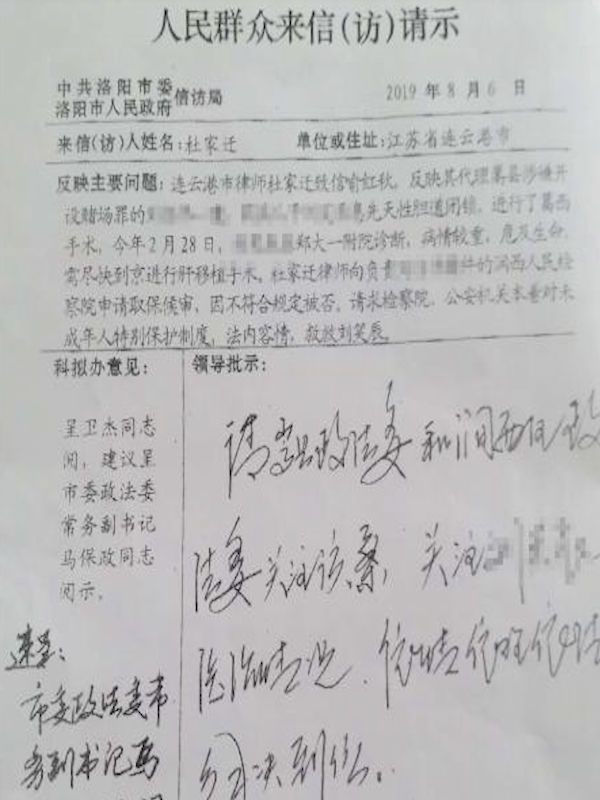 人民群众来信(访)请示
中共洛阳市委
洛阳市人民政府 信访局 2019 年 8 月 6 日
来信(访)人姓名: 杜家迁 单位或住址: 江苏省连云港市
反映主要问题: 连云港市律师杜家迁致信喻红秋, 反映其代理嵩县涉嫌开
设赌场罪的 患先天性胆道闭锁, 进行了葛西
手术, 今年2月28日, 郑大一附院诊断, 病情较重, 危及生命,
需尽快到京进行肝移植手术。杜家迁律师向负责 件的涧西人民检
察院申请取保候审, 因不符合规定被否。请求检察院、公安机关本着对未
成年人特别保护制度, 法内容情, 救救刘笑辰。
科拟办意见: 领导批示:
呈卫杰同志
阅, 建议呈
市委政法委
常务副书记
马保政同志
阅示。
请嵩县政法委和涧西区政
法委关注该案, 关注
医治情况, 依法
速呈:
市委政法委常
务副书记马